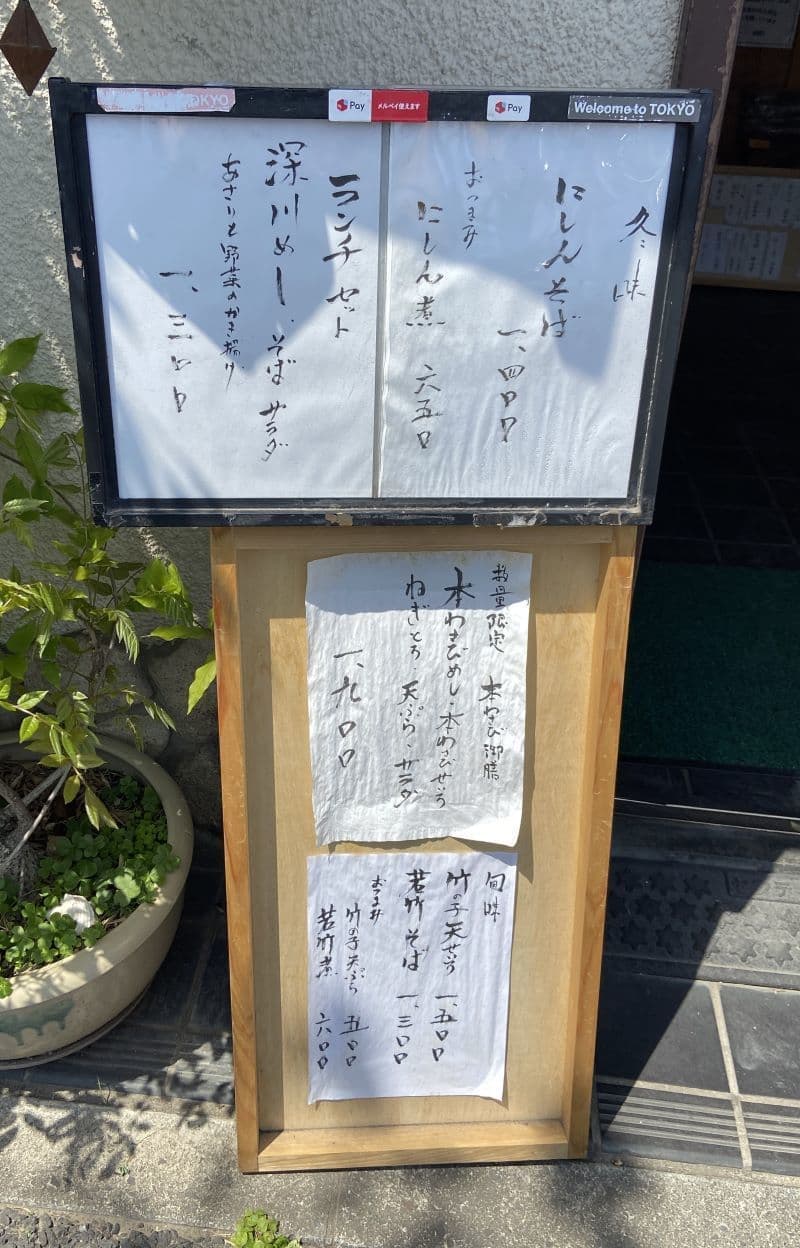 Pay
メルペイ使えます
Pay
Welcome to TOKYO
冬味
にしんそば
一、四〇〇
おつまみ
にしん煮 六五〇
ランチセット
深川めし、そば サラダ
あさりと野菜のかき揚げ
一、三〇〇
数量限定 本わさび御膳
本わさびめし・本わさびせいろ
ねぎとろ、天ぷら、サラダ
一、九〇〇
旬味
竹の子天せいろ 一、五〇〇
若竹そば 一、三〇〇
おつまみ
竹の子天ぷら 五〇〇
若竹煮 六〇〇